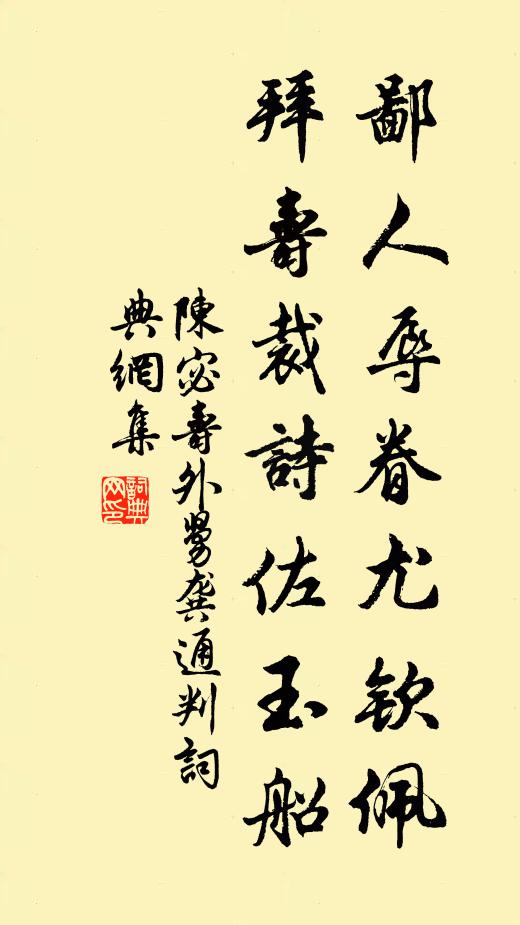 鄙人辱眷尤钦佩
拜壽裁詩佐玉船
陳宓壽外舅龔通判詞
典網集
詞典網印